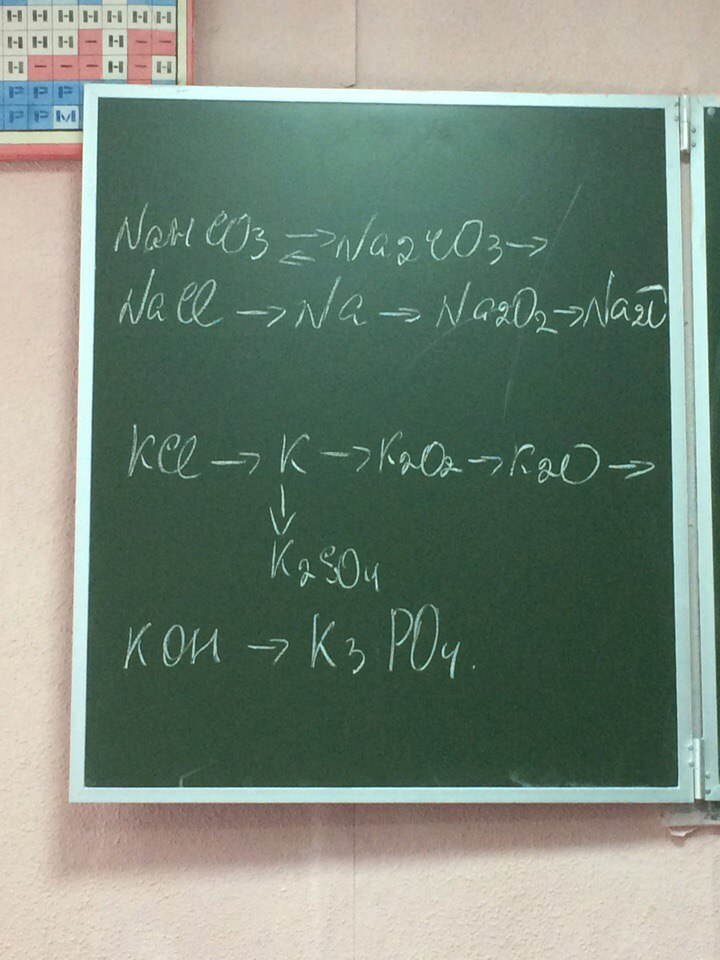 H H H H H H H
H H H - H - H
H - - - H - H
P P P
P P M
NaHCO3 ⇄ Na2CO3 →
NaCl → Na → Na2O2 → Na2O
KCl → K → K2O2 → K2O →
↓
K2SO4
KOH → K3PO4.